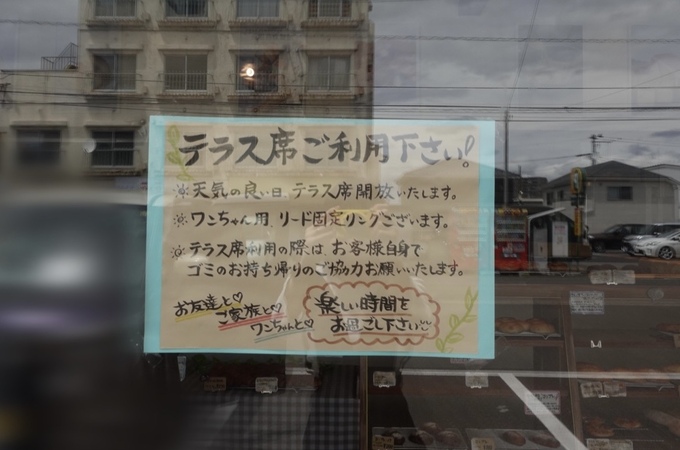 テラス席ご利用下さい!
天気の良い日、テラス席開放いたします。
ワンちゃん用 リード固定リングございます。
テラス席利用の際は、お客様自身で
ゴミのお持ち帰りのご協力お願いいたします。
お友達と♡
ご家族と♡
ワンちゃんと♡
楽しい時間を
お過ごし下さい